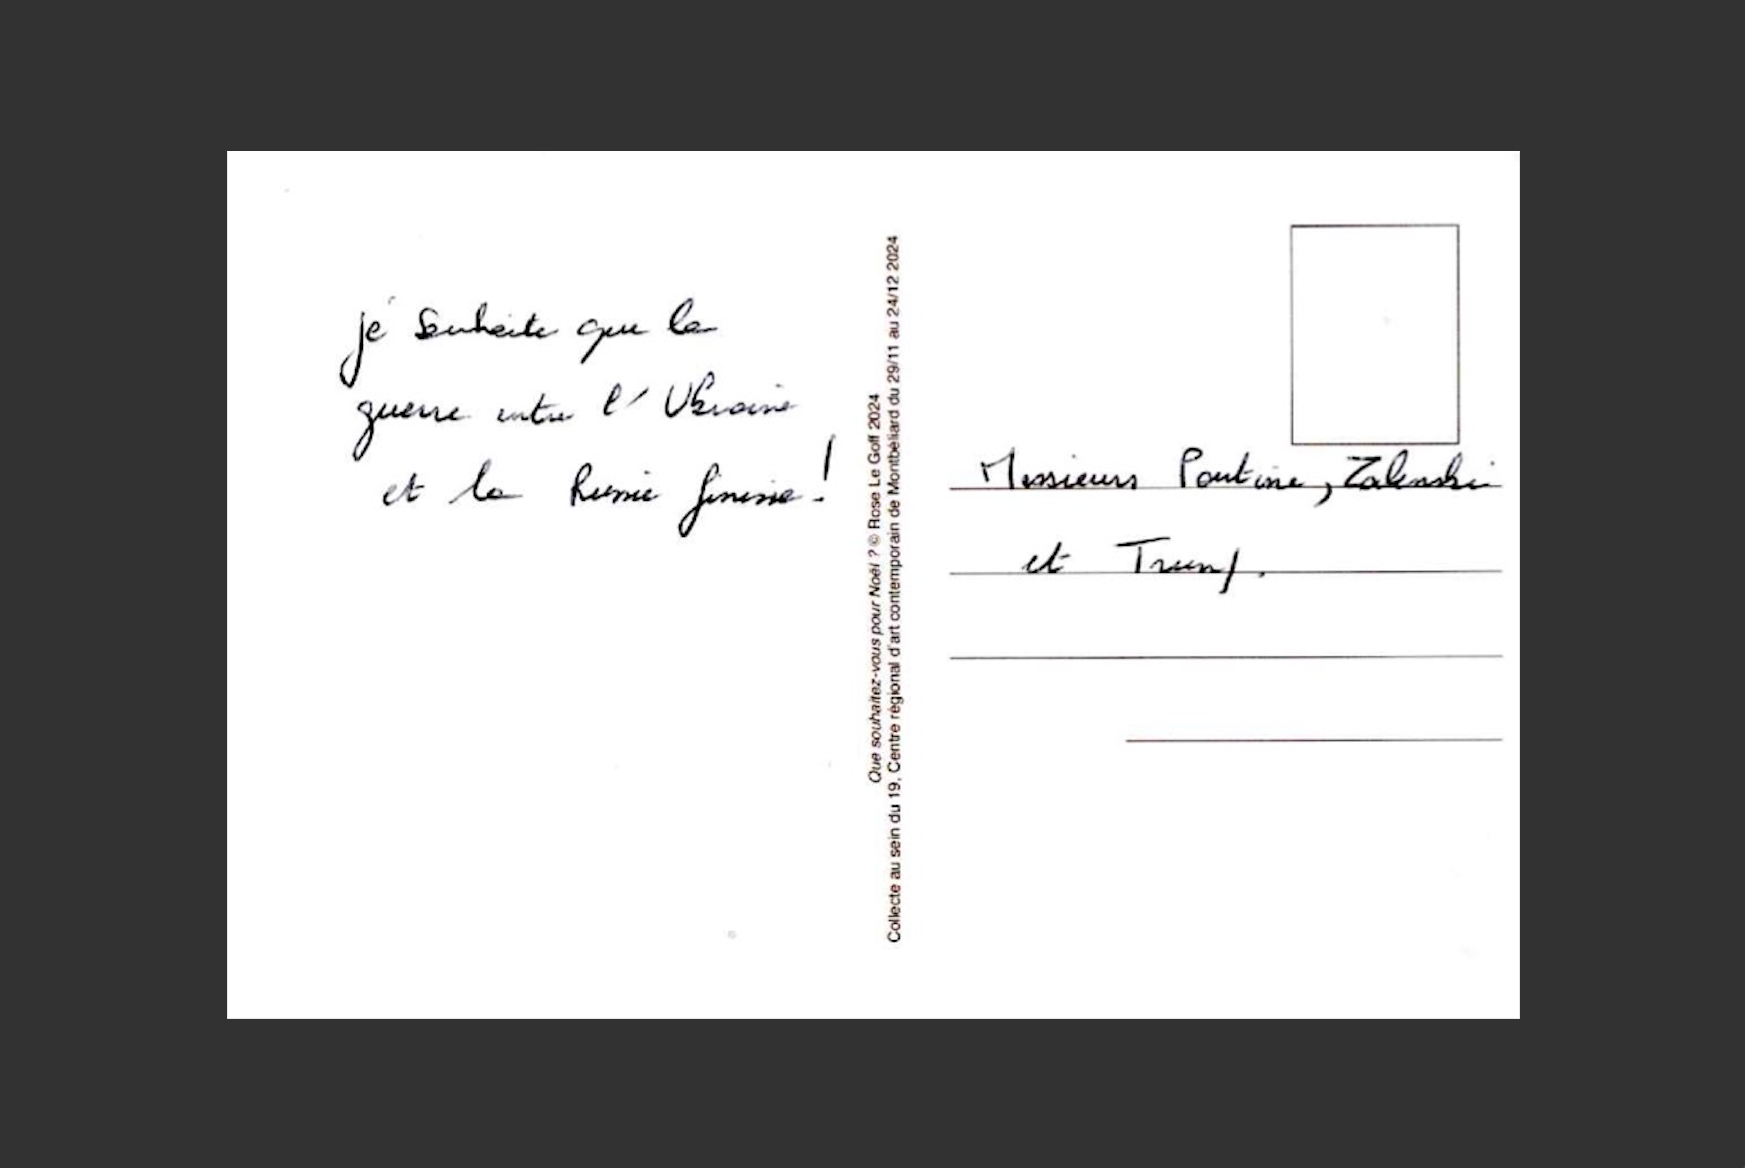 je souhaite que la
guerre entre l'Ukraine
et la Russie finisse !
Que souhaitez-vous pour Noël ? © Rose Le Goff 2024
Collecte au sein du 19, Centre régional d'art contemporain de Montbéliard du 29/11 au 24/12 2024
Messieurs Poutine, Zalenski
et Trump.